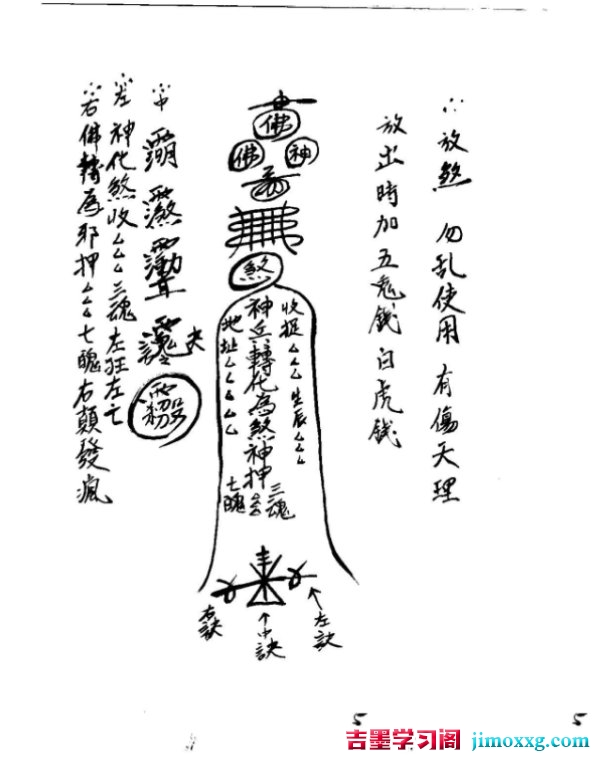 ∴放煞 勿乱使用 有傷天理
放出時加五鬼錢白虎錢
佛
佛 神
煞
收捉△△△生辰△△△
神兵轉化為煞神押
三魂
七魄
地址△△△△△
左訣
中訣
右訣
∴中
∴左 神化煞收△△△三魂左狂左亡
∴右 佛轉為邪押△△△七魄右顛發瘋
5
5
吉墨学习阁 jimoxxg.com